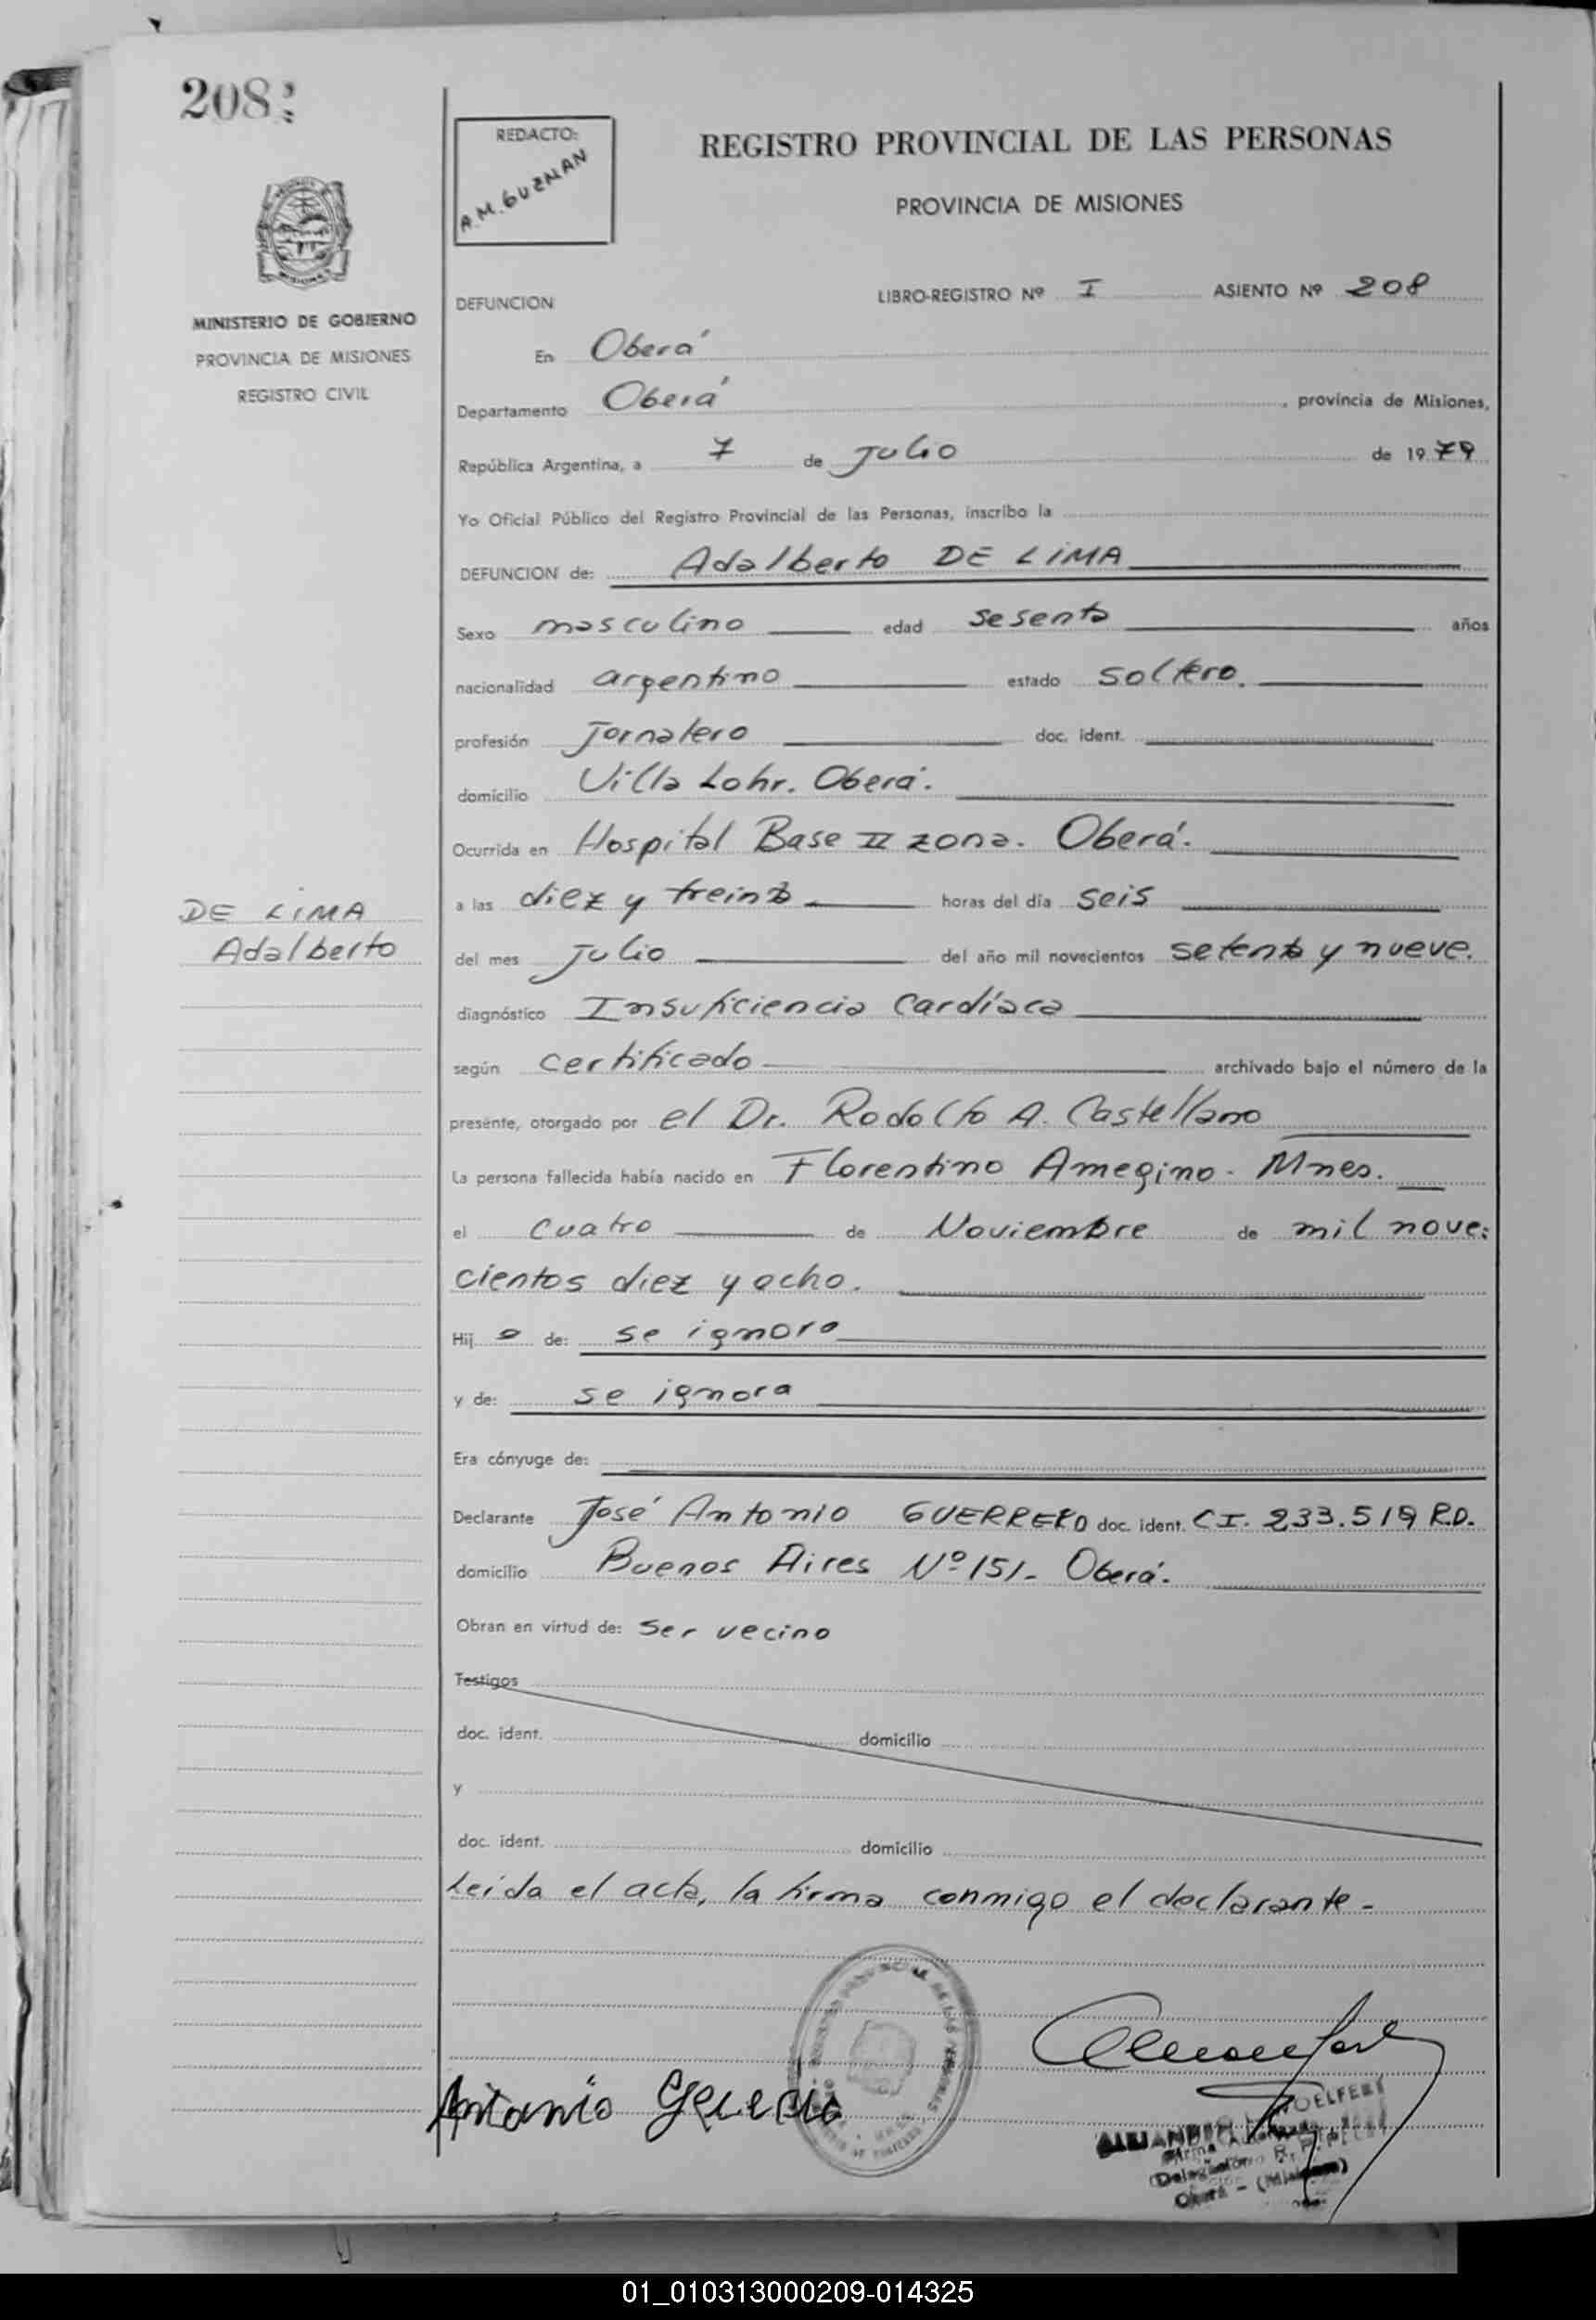 208
REDACTO:
A.M. GUZMAN
REGISTRO PROVINCIAL DE LAS PERSONAS
PROVINCIA DE MISIONES
MISIONES
MINISTERIO DE GOBIERNO
PROVINCIA DE MISIONES
REGISTRO CIVIL
DEFUNCION LIBRO-REGISTRO Nº I ASIENTO Nº 208
En Oberá
Departamento Oberá, provincia de Misiones,
República Argentina, a 7 de Julio de 1979
Yo Oficial Público del Registro Provincial de las Personas, inscribo la
DEFUNCION de: Adalberto DE LIMA
Sexo masculino edad sesenta años
nacionalidad argentino estado soltero.
profesión Jornalero doc. ident.
domicilio Villa Lohr. Oberá.
Ocurrida en Hospital Base II zona. Oberá.
DE LIMA
Adalberto
a las diez y treinta horas del día seis
del mes Julio del año mil novecientos setenta y nueve.
diagnóstico Insuficiencia Cardíaca
según certificado archivado bajo el número de la
presente, otorgado por el Dr. Rodolfo A. Castellano
La persona fallecida había nacido en Florentino Amegino - Mnes.
el cuatro de Noviembre de mil nove:
cientos diez y ocho.
Hijo de: se ignora
y de: se ignora
Era cónyuge de:
Declarante José Antonio GUERRERO doc. ident. C I. 233.519 R.D.
domicilio Buenos Aires Nº 151- Oberá.
Obran en virtud de: ser vecino
Testigos
doc. ident. domicilio
y
doc. ident. domicilio
Leída el acta, la firma conmigo el declarante -
Antonio
01_010313000209-014325